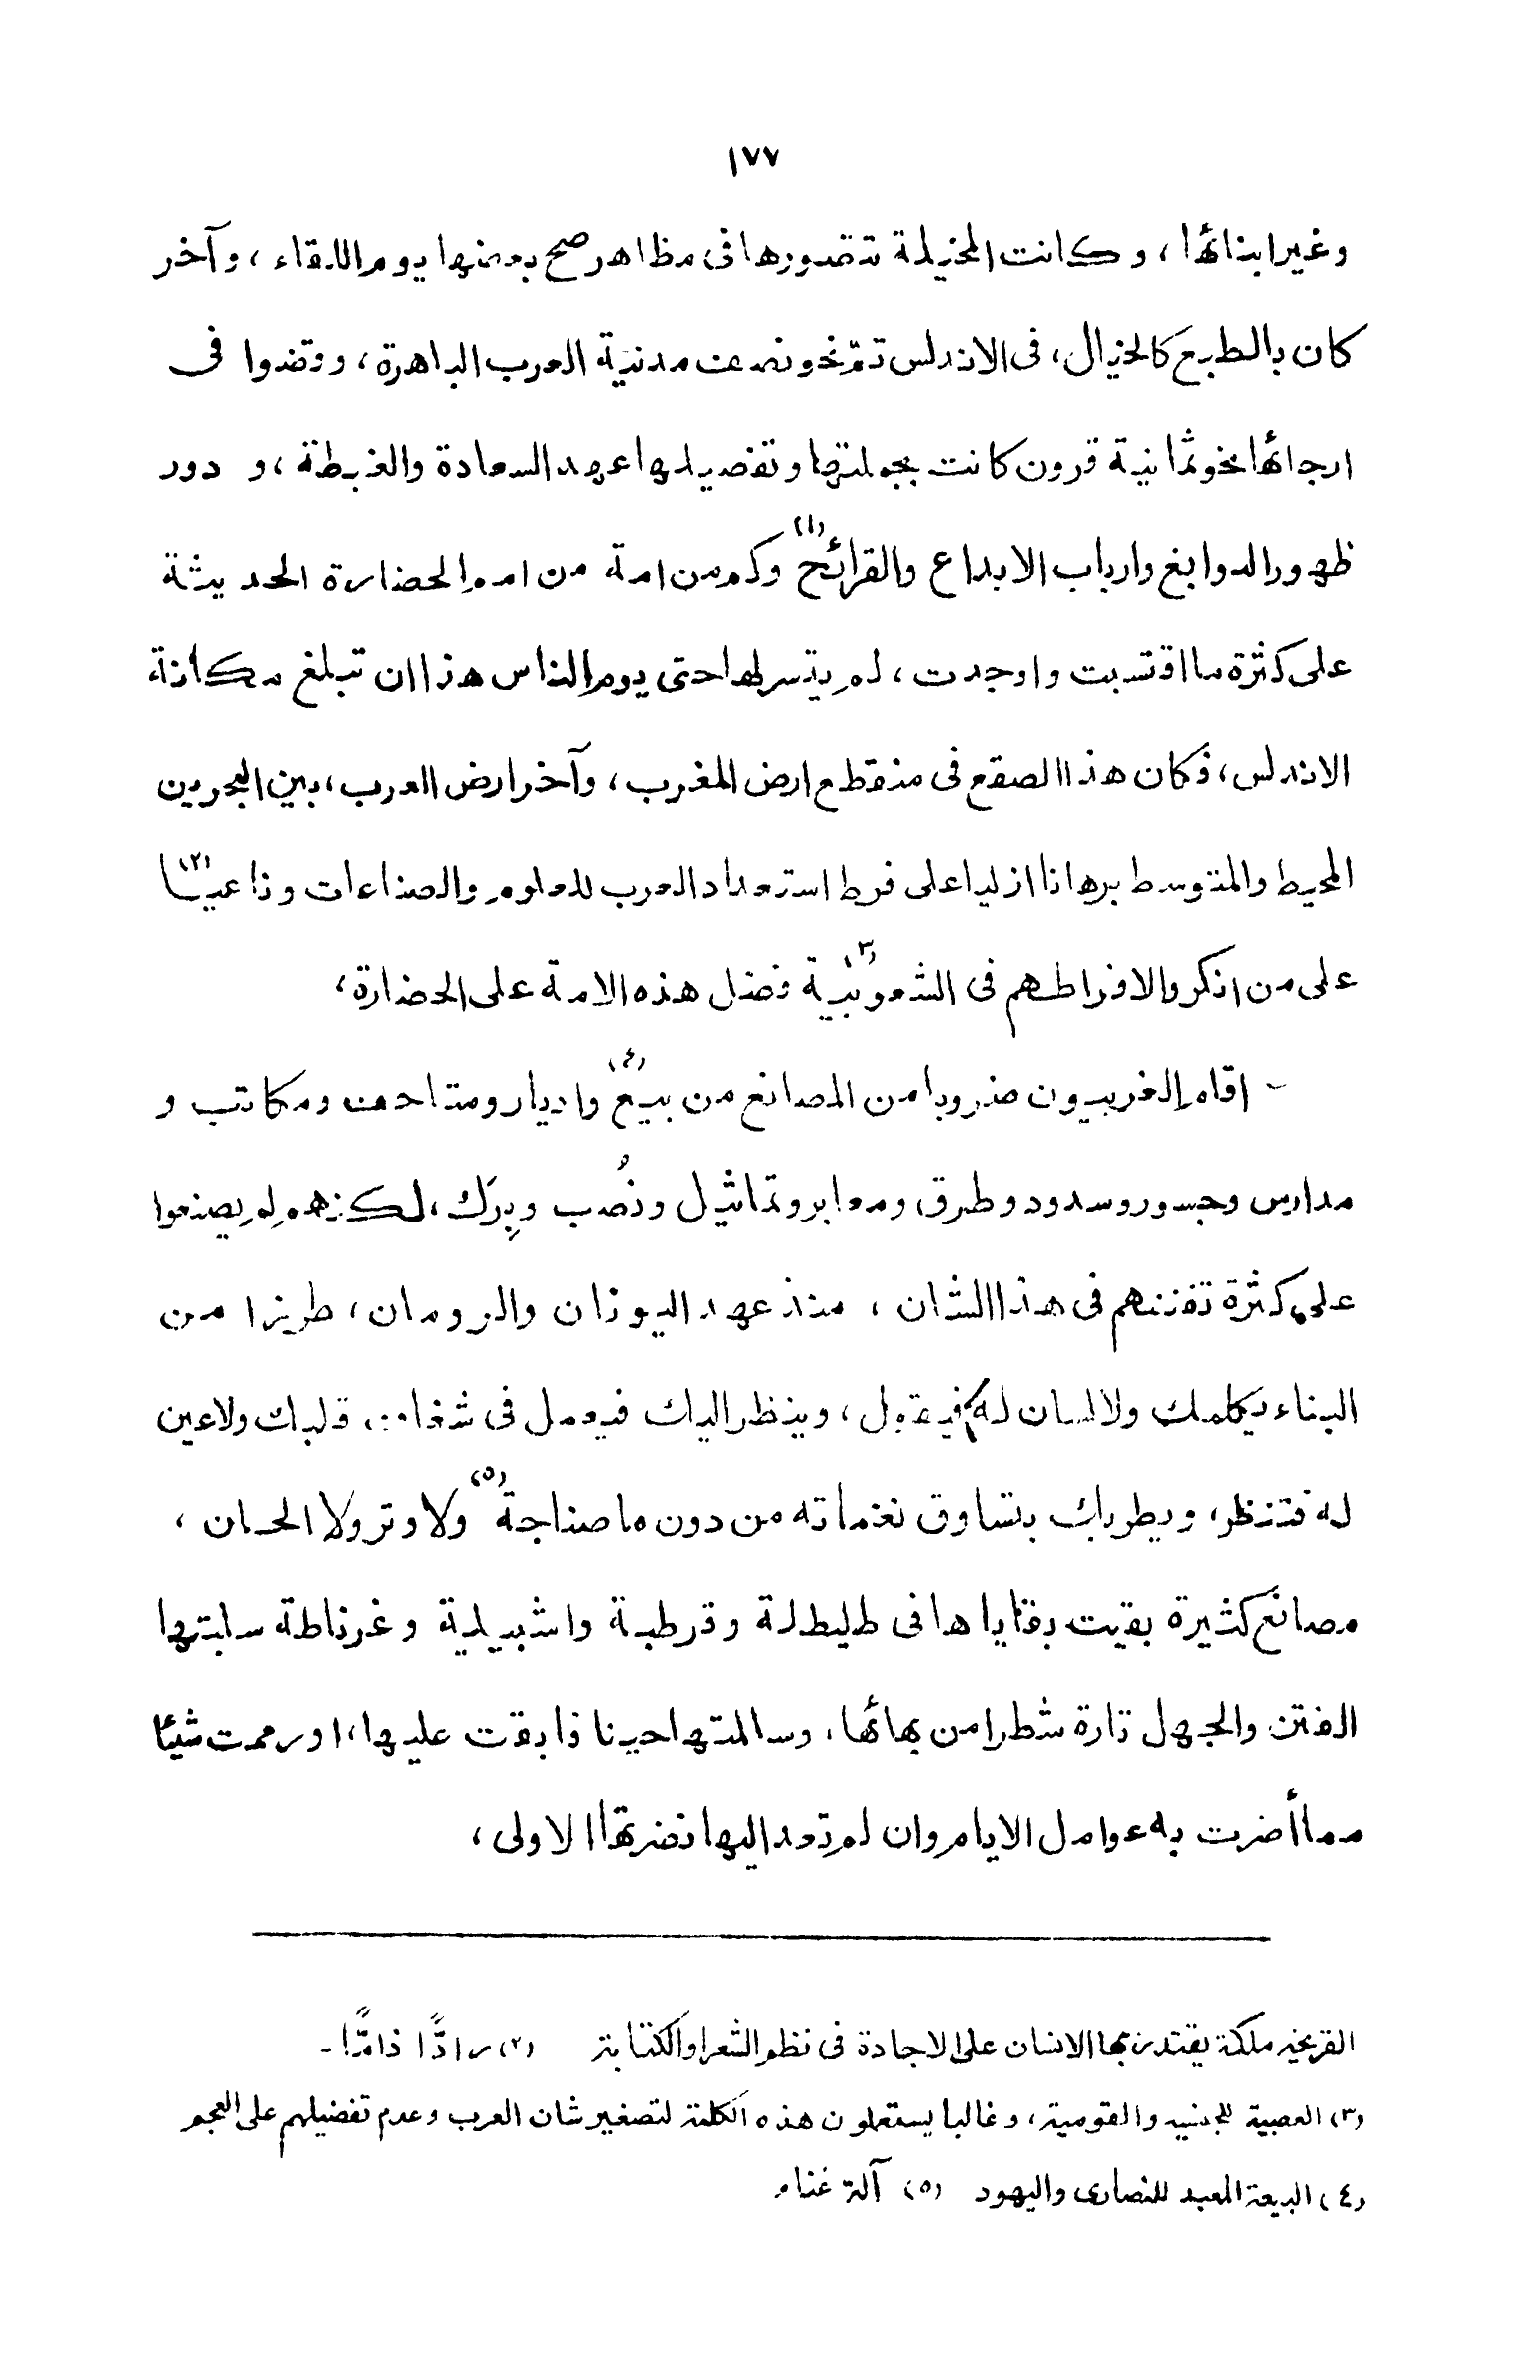 ١٧٧
وغير ابنائها ، وكانت المخيلة تتصورها فى مظاهر صح بعضها يوم اللقاء ، وآخر
كان بالطبع كالخيال، فى الاندلس تمّ نحو نصف مدنية العرب الباهرة ، وقضوا فى
ارجائها نحو ثمانية قرون كانت بجملتها وتفصيلها عهد السعادة والغبطة ، و دور
ظهور النوابغ وارباب الابداع والقرائح (١) وكم من امة من امم الحضارة الحديثة
على كثرة ما اقتبست واوجدت ، لم يتسر لها حتى يوم الناس هذا ان تبلغ مكانة
الاندلس، فكان هذا الصقع فى منقطع ارض المغرب ، وآخر ارض العرب ، بين البحرين
المحيط والمتوسط برهانا ازليا على فرط استعداد العرب للعلوم والصناعات وناعيا (٢)
على من انكر والافراطهم فى الشعوبية (٣) فضل هذه الامة على الحضارة ،
- اقام الغربيون ضروبا من المصانع من بيع (٤) واديار ومتاحف ومكاتب و
مدارس وجسور وسدود وطرق ومعابر وتماثيل ونُصُب وبِرَك ، لكنهم لم يصنعوا
على كثرة تفننهم فى هذا الشان ، منذ عهد اليونان والرومان ، طرزا من
البناء يكلمك ولا لسان له فيقول ، وينظر اليك فيعمل فى شغاف قلبك ولا عين
له فتنظر ، ويطربك بتساوق نغماته من دون ما صناجة (٥) ولا وتر ولا الحان ،
مصانع كثيرة بقيت بقايا ها فى طليطلة وقرطبة واشبيلية وغرناطة سلبتها
الفتن والجهل تارة شطرا من بهائها ، وسالمتها حينا فابقت عليها ، اورممت شيئا
مما أضرت به عوامل الايام وان لم تعد اليها نضرتها الاولى ،
القريحه ملكة يقتدر بها الانسان على الاجادة فى نظم الشعر اوالكتابة (٢) رادًّا ذامًّا -
(٣) العصبية للجنسيه والقومية ، وغالبا يستعملون هذه الكلمة لتصغير شان العرب وعدم تفضيلهم على العجم
(٤) البيعة المعبد للنصارى واليهود (٥) آلة غناء